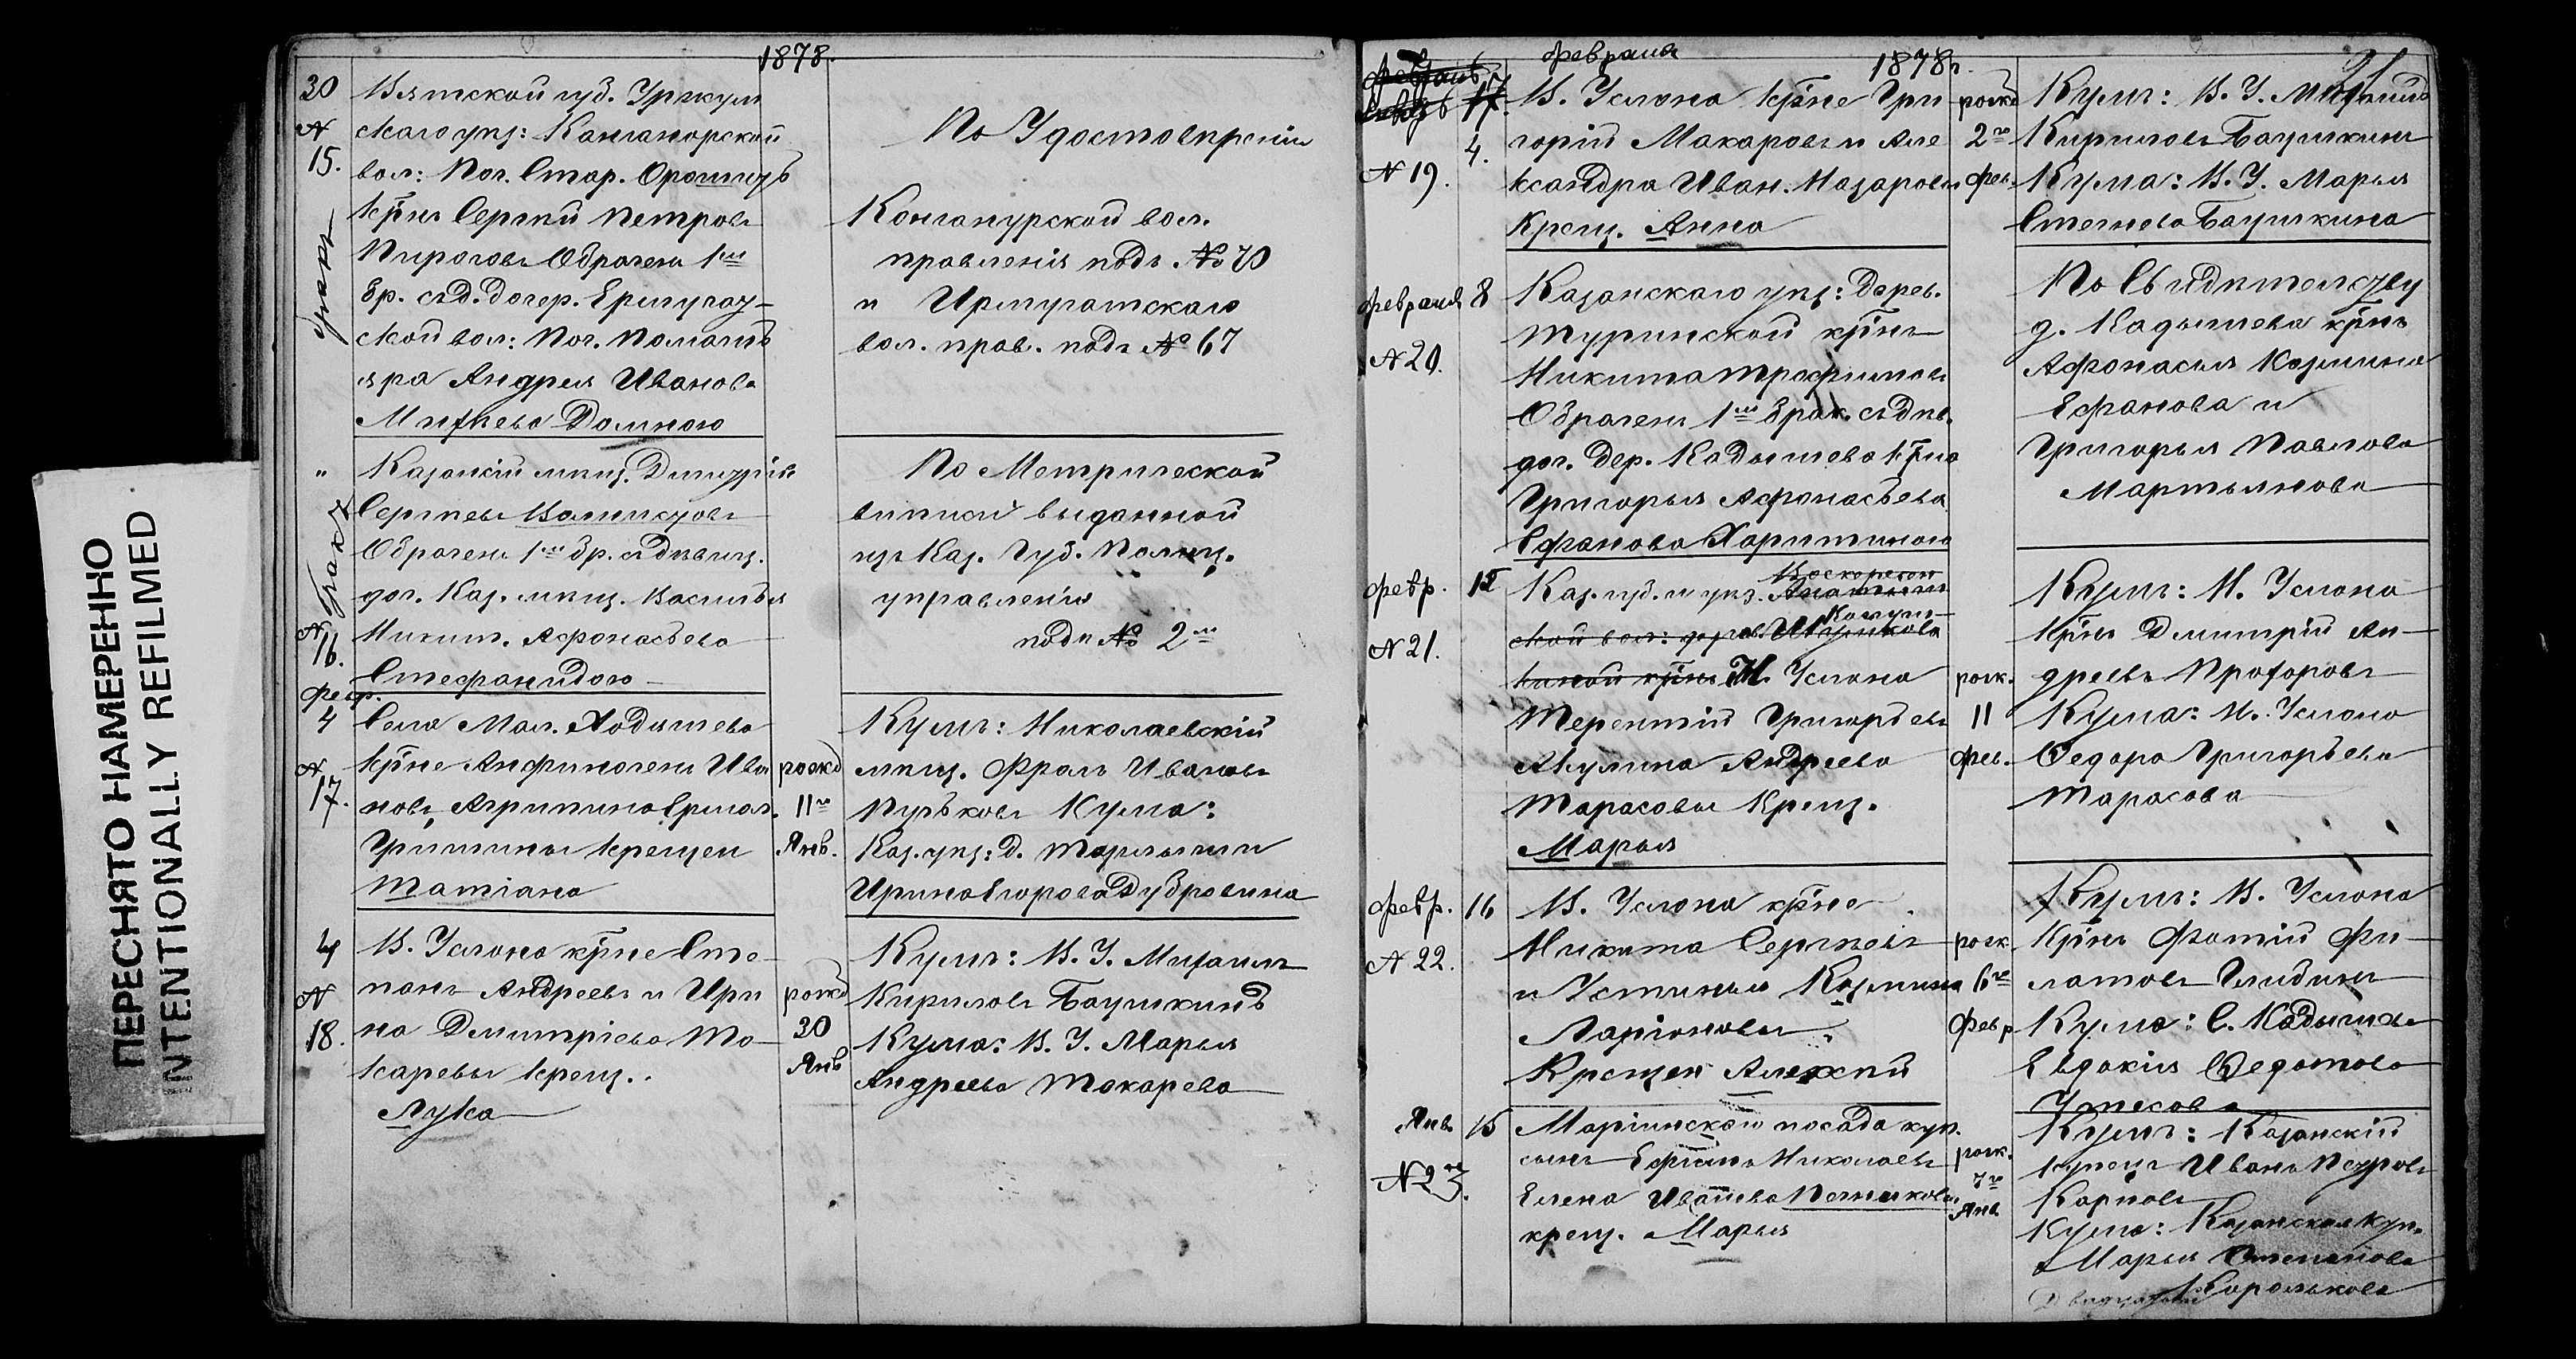 ПЕРЕСНЯТО НАМЕРЕННО
INTENTIONALLY REFILMED
1878.
30
N
15.
бракъ
Вятской губ. Уржум
скаго уѣз: Конганорской
вол: Поч. Стар.
кр̃нъ Сергѣй Петровъ
Пироговъ Обрачены 1мъ
бр. съ д. дочер.
ской вол: Поч.
Андрея Иванова
Михѣева Домною
По Удостовѣренію
Конганурской вол.
правленія подъ № 70
и Ирмучатскаго
вол. прав. подъ № 67
"
бракъ
N
16.
Казанскій мѣщ. Димитрій
Сергѣевъ
Обрачены 1мъ бр. съ дѣвиц.
доч. Каз. мѣщ. Василья
Никит. Афонасьева
Стефанидою
По Метрической
выписи выданной
изъ Каз. Губ. Полиц.
управленія
подъ № 2мъ
февр.
4
N
17.
Села Мал. Кодышева
кр̃не Анфиногенъ Ива
новъ, Агрипина Ермол.
Гришины крещен
Татіана
рожд
11го
Янв.
Кумъ: Николаевскій
мѣщ. Фролъ Ивановъ
Пучьковъ Кума:
Каз. уѣз: д.
Ирина Егорова Дубровина
4
N
18.
В. Услона кр̃не Сте
панъ Андреевъ и Ири
на Дмитріева То
каревы крещ.
Лука
рожд
30
Янв
Кумъ: В. У. Михаилъ
Кириловъ Баушкинъ
Кума: В. У. Марья
Андреева Токарева
февраля
1878г.
17.
4.
N 19.
В. Услона кр̃не Гри
горій Макаровъ и Але
ксандра Иван. Назаровы
Крещ. Анна
рожд
2го
фев.
Кумъ: В. У. Михаилъ
Кириловъ Баушкинъ
Кума: В. У. Марья
Степнева Баушкина
февраля 8
N 20.
Казанскаго уѣз: Дерев.
Туринской кр̃нъ
Никита Трофимовъ
Обрачены 1мъ брак. съ дѣв.
доч. Дер. Кадышева кр̃на
Григорья Афонасьева
Ефанова Харитиною
По Свидѣтельству
д. Кадышева кр̃нъ
Афонасья Козмина
Ефанова и
Григорья Павлова
Мартынова
февр. 12
N 21.
Каз. губ. и уѣз. Воскресен
ской вол: дерев.
кр̃нъ Н. Услона
Терентій Григорьевъ
Акулина Андреева
Тарасовы Крещ.
Марья
рож.
11
фев.
Кумъ: Н. Услона
кр̃нъ Дмитрій Ан
дреевъ Прохоровъ
Кума: Н. Услона
Федора Григорьева
Тарасова
февр. 16
N 22.
В. Услона кр̃не
Никита Сергѣевъ
и Устинья Козмина
Ларіоновы
Крещен Алексѣй
рож.
6го
февр
Кумъ: В. Услона
кр̃нъ Фотій Фи
латовъ Гладинъ
Кума: С. Кадышева
Евдокія Федотова
Утесова
Янв. 15
N 23.
Маріинскаго посада куп.
сынъ Ефимъ Николаевъ
Елена Иванова Печниковы
крещ. Марья
рож.
7го
Янв
Кумъ: Казанскій
купецъ Иванъ Петровъ
Карповъ
Кума: Казанская куп.
Марья Степанова
Королькова